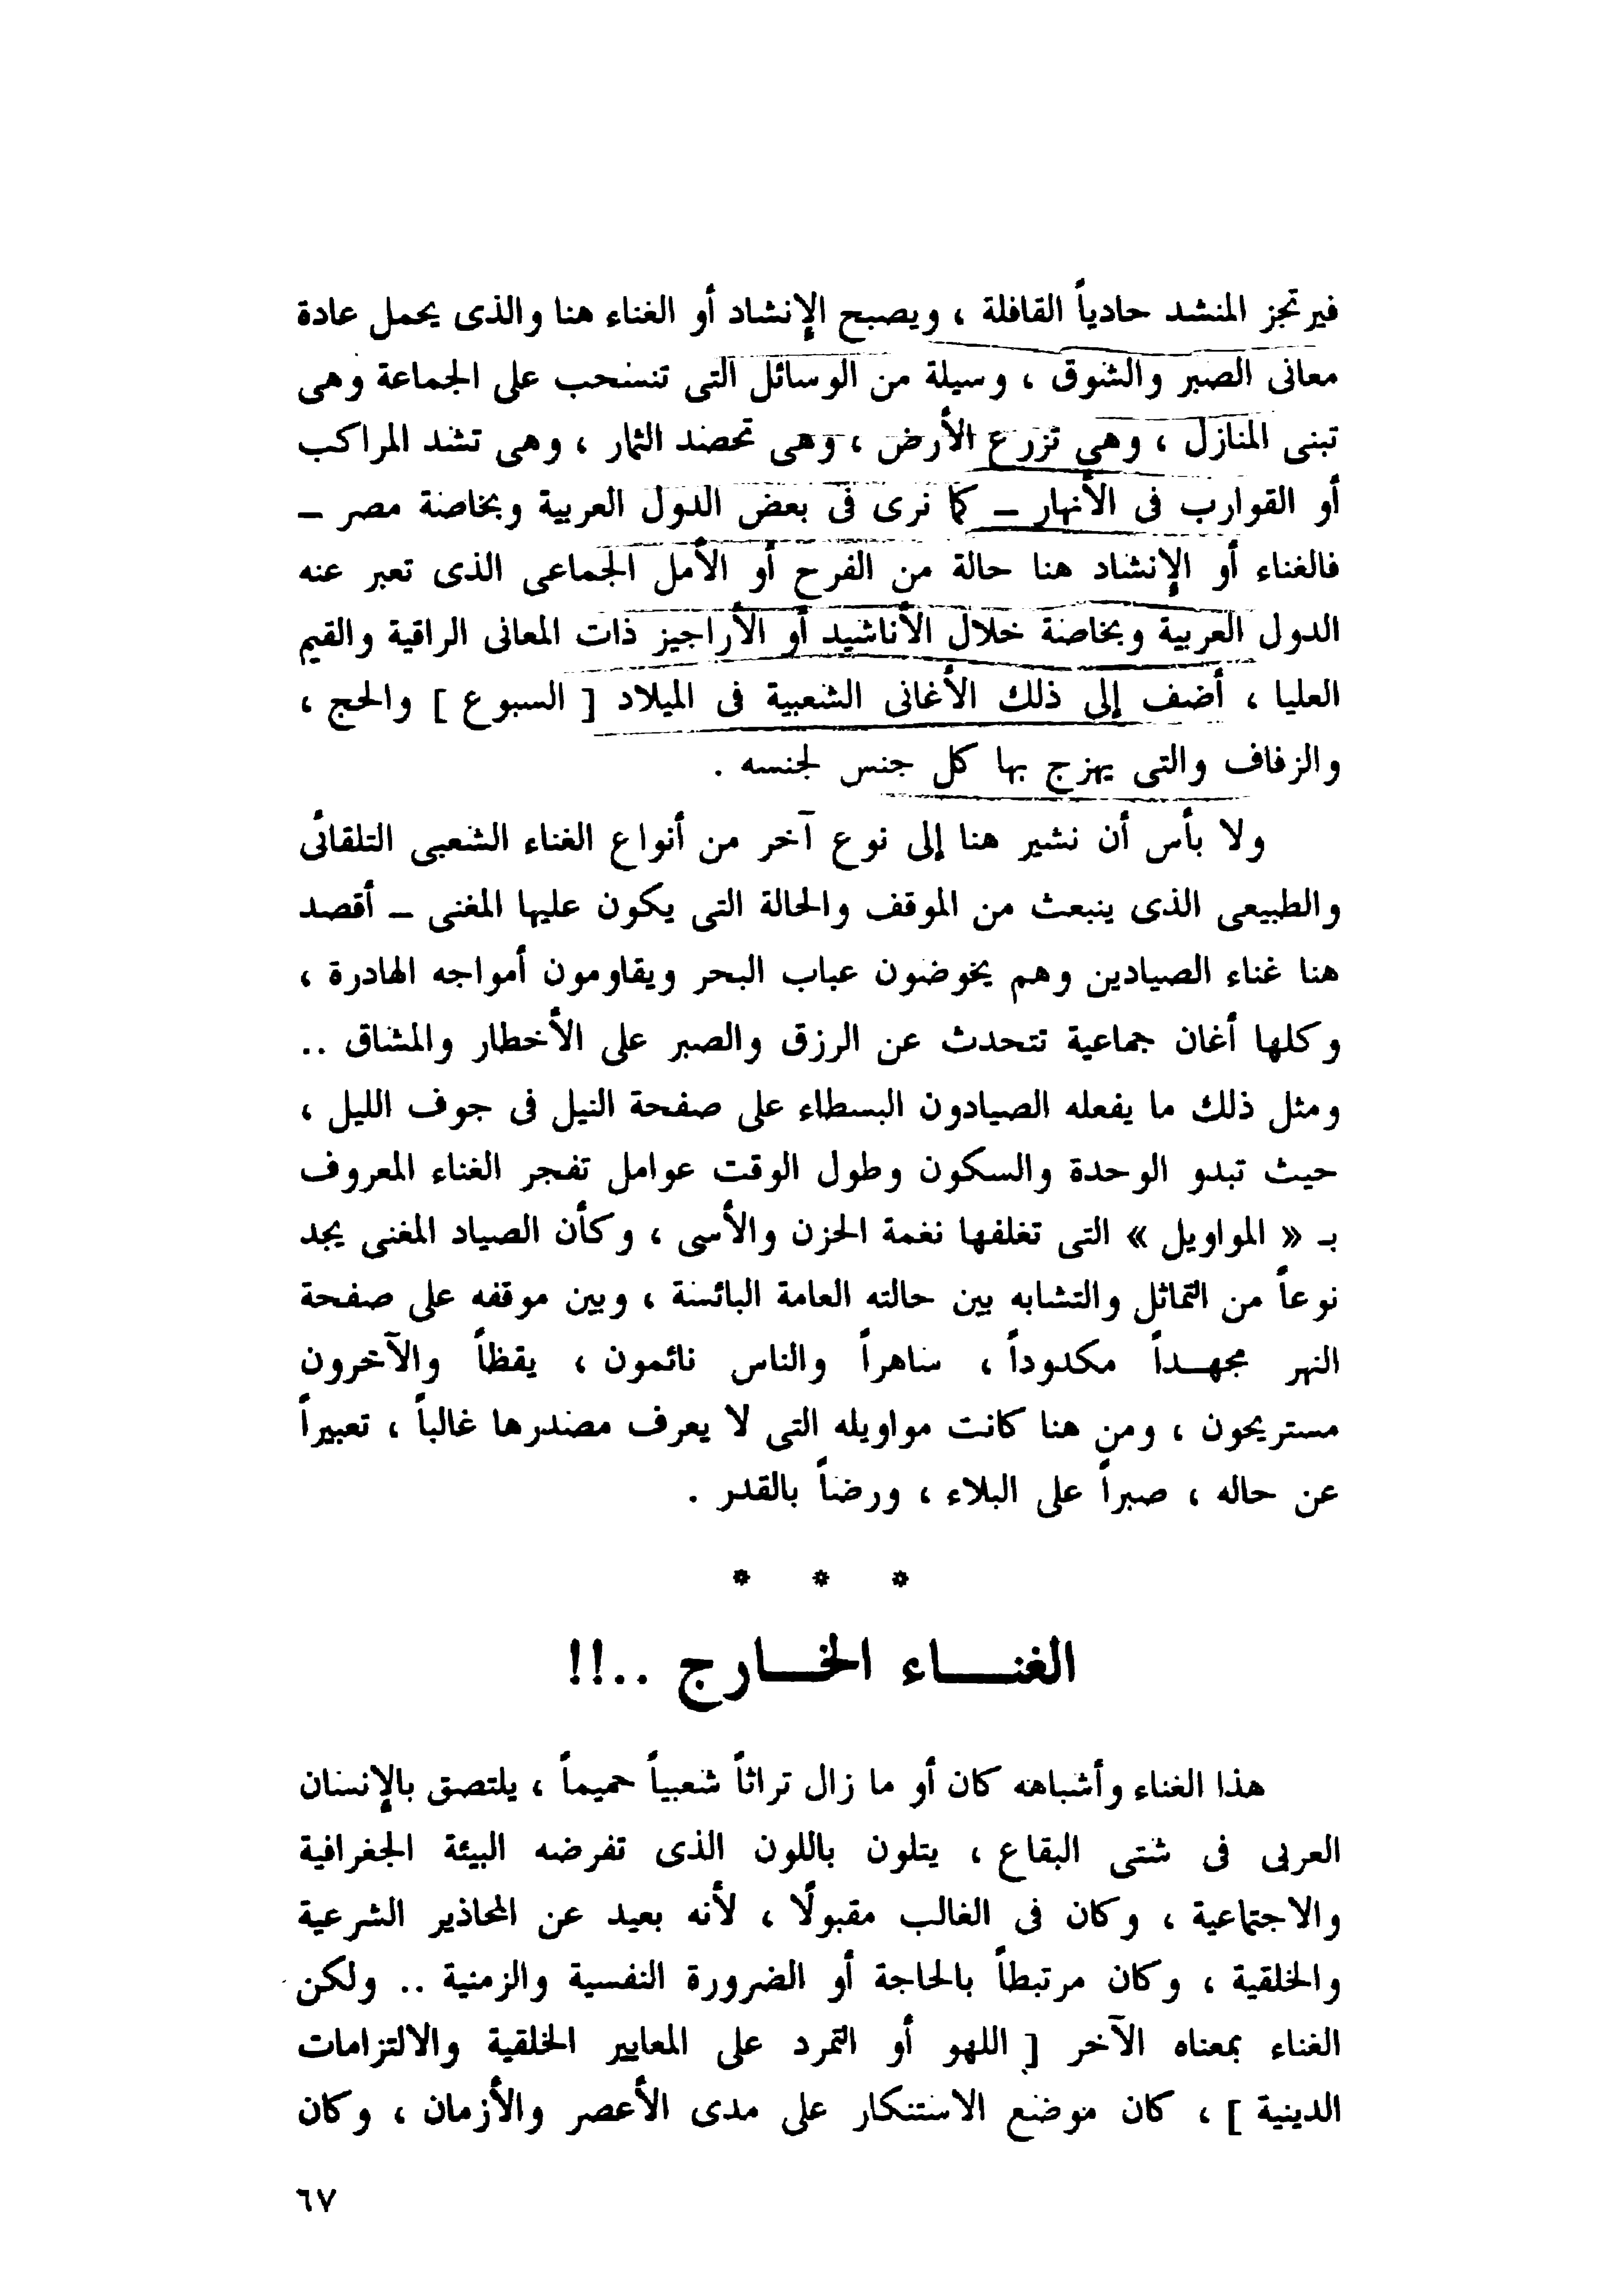 فيرتجز المنشد حادياً القافلة ، ويصبح الإنشاد أو الغناء هنا والذى يحمل عادة
معانى الصبر والشوق ، وسيلة من الوسائل التى تنسحب على الجماعة وهى
تبنى المنازل ، وهى تزرع الأرض ، وهى تحصد الثمار ، وهى تشد المراكب
أو القوارب فى الأنهار – كما نرى فى بعض الدول العربية وبخاصة مصر –
فالغناء أو الإنشاد هنا حالة من الفرح أو الأمل الجماعى الذى تعبر عنه
الدول العربية وبخاصة خلال الأناشيد أو الأراجيز ذات المعانى الراقية والقيم
العليا ، أضف إلى ذلك الأغانى الشعبية فى الميلاد [ السبوع ] والحج ،
والزفاف والتى يهزج بها كل جنس لجنسه .
ولا بأس أن نشير هنا إلى نوع آخر من أنواع الغناء الشعبى التلقائى
والطبيعى الذى ينبعث من الموقف والحالة التى يكون عليها المغنى – أقصد
هنا غناء الصيادين وهم يخوضون عباب البحر ويقاومون أمواجه الهادرة ،
وكلها أغان جماعية تتحدث عن الرزق والصبر على الأخطار والمشاق ..
ومثل ذلك ما يفعله الصيادون البسطاء على صفحة النيل فى جوف الليل ،
حيث تبدو الوحدة والسكون وطول الوقت عوامل تفجر الغناء المعروف
بـ « المواويل » التى تغلفها نغمة الحزن والأسى ، وكأن الصياد المغنى يجد
نوعاً من التماثل والتشابه بين حالته العامة البائسة ، وبين موقفه على صفحة
النهر مجهــداً مكدوداً ، ساهراً والناس نائمون ، يقظاً والآخرون
مستريحون ، ومن هنا كانت مواويله التى لا يعرف مصدرها غالباً ، تعبيراً
عن حاله ، صبراً على البلاء ، ورضاً بالقدر .
* * *
الغنـــاء الخـــارج ..!!
هذا الغناء وأشباهه كان أو ما زال تراثاً شعبياً حميماً ، يلتصق بالإنسان
العربى فى شتى البقاع ، يتلون باللون الذى تفرضه البيئة الجغرافية
والاجتماعية ، وكان فى الغالب مقبولًا ، لأنه بعيد عن المحاذير الشرعية
والخلقية ، وكان مرتبطاً بالحاجة أو الضرورة النفسية والزمنية .. ولكن
الغناء بمعناه الآخر [ اللهو أو التمرد على المعايير الخلقية والالتزامات
الدينية ] ، كان موضع الاستنكار على مدى الأعصر والأزمان ، وكان
٦٧